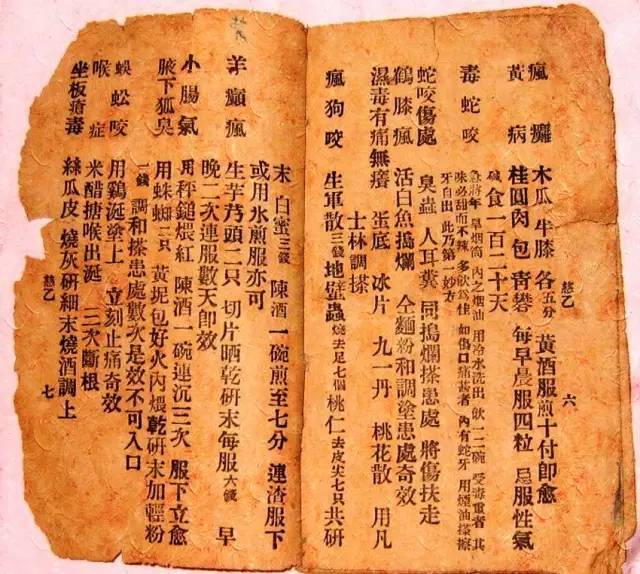 慈乙 六
瘋癱 木瓜 牛膝 各五分 黃酒服煎十付即愈
黃病 桂圓肉包青礬 每早晨服四粒 忌服性氣
鹹食一百二十天
毒蛇咬 急將年旱烟筒內之烟油 用冷水洗出飲一二碗 受毒重者其
味必甜而不辣 多飲為佳 如傷口痛甚者 內有蛇牙 用煙油搽擦
牙自出 此乃第一妙方
蛇咬傷處 臭蟲 人耳糞 同搗爛搽患處 將傷扶走
鶴膝瘋 活白魚搗爛 仝麵粉和調塗患處奇效
濕毒有痛無癢 蛋底 冰片 九一丹 桃花散 用凡
士林調搽
瘋狗咬 生軍散三錢 地壁蟲燒去足七個 桃仁去皮尖七只 共研
末 白蜜三錢 陳酒一碗煎至七分 連渣服下
或用水煎服亦可
羊癲瘋 生芋艿頭二只 切片晒乾研末每服六錢 早
晚二次連服數天即效
小腸氣 用秤鎚煨紅 陳酒一碗連沉三次 服下立愈
腋下狐臭 用蛛蜘三只 黃坭包好火內煨乾研末加輕粉
一錢 調和搽患處數次是效不可入口
蜈蚣咬 用鷄涎塗上 立刻止痛奇效
喉症 米醋搪喉出涎 二次斷根
坐板瘡毒 絲瓜皮 燒灰研細末燒酒調上
慈乙 七